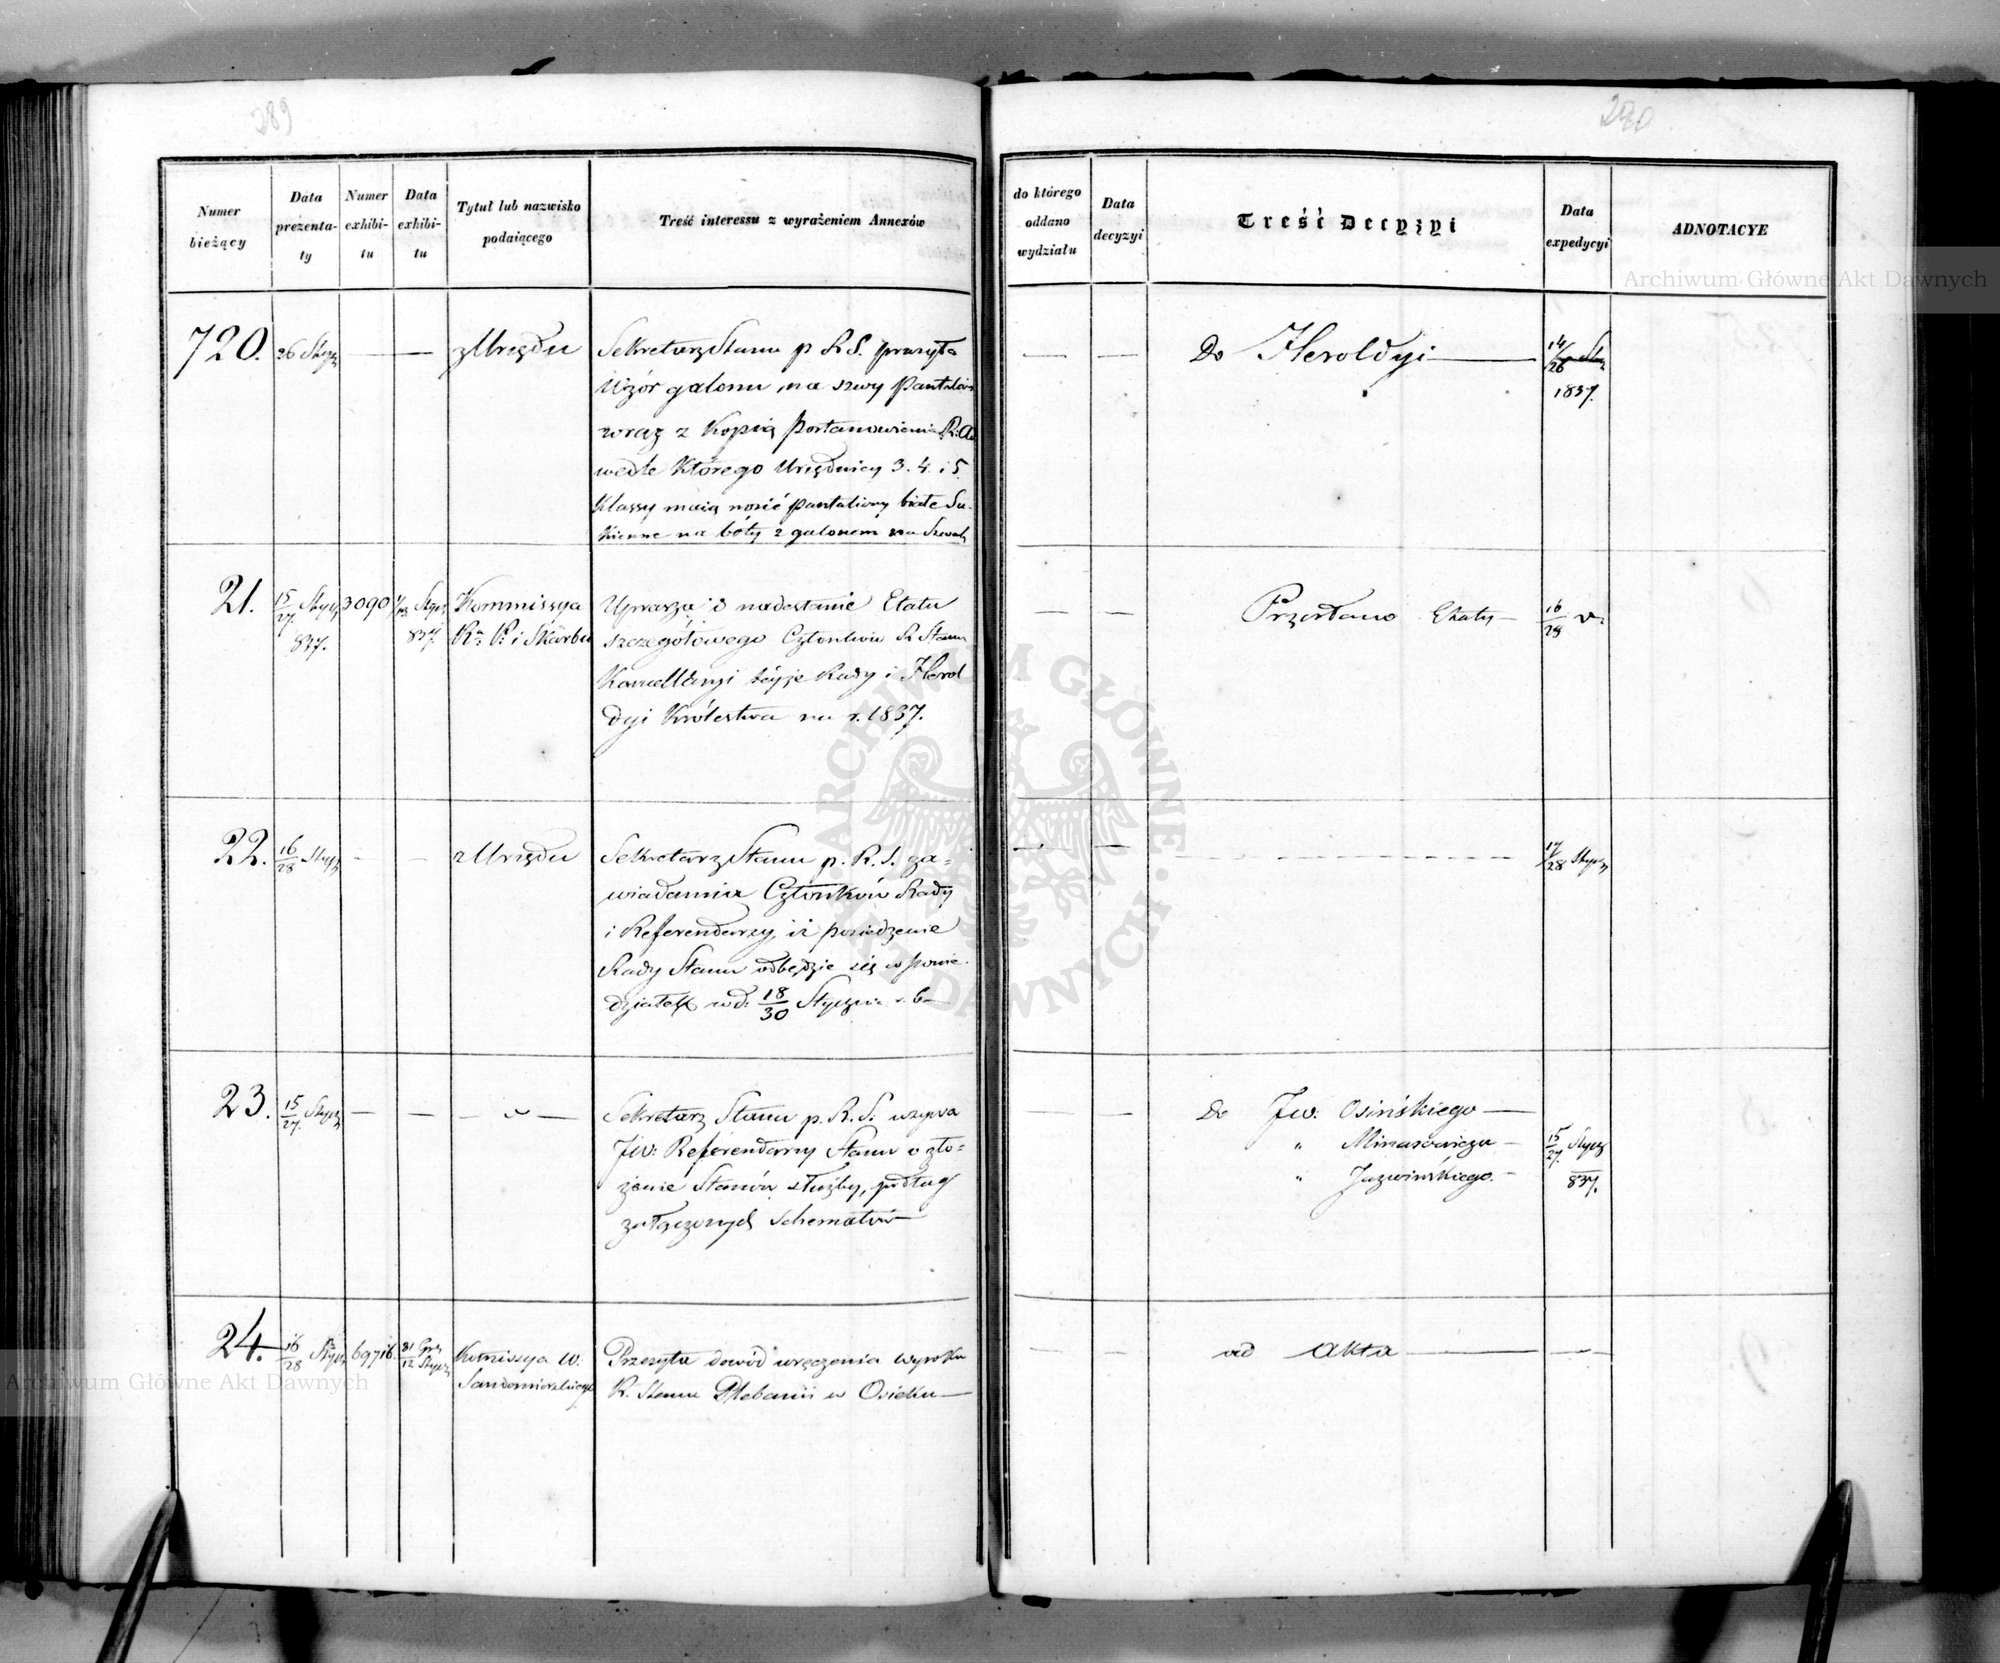 289
290
Numer
bieżący
Data
prezenta-
ty
Numer
exhibi-
tu
Data
exhibi-
tu
Tytuł lub nazwisko
podaiącego
Treść interessu z wyrażeniem Annexów
do którego
oddano
wydziału
Data
decyzyi
Treść Decyzyi
Data
expedycyi
ADNOTACYE
720. 26 Stycz — — z Urzędu
Sekretarz Stanu p R S. przesyła
Wzór galonu na szwy Pantalion
wraz z Kopią Postanowienia R: Ad
wedle Którego Urzędnicy 3. 4. i 5.
Klassy maią nosić pantaliony białe Su-
kienne na bóty z galonem na Szwach
— — Do Heroldyi — 14/26 Stz
1837.
21. 15/27 Stycz 3090 1/13 Stycz Kommissya
837. 837. Rz: P: i Skarbu
Uprasza o nadesłanie Etatu
szczegółowego Członków R Stanu
Kancellaryi téyże Rady i Herol
dyi Królestwa na r. 1837.
— — Przesłano Etaty — 16/28 v.
22. 16/28 Stycz — — z Urzędu
Sekretarz Stanu p. R. S. za-
wiadamia Członków Rady
i Referendarzy, iż posiedzenie
Rady Stanu odbędzie się w ponie-
działek w d. 18/30 Stycznia r. b —
— — 17/28 Stycz
23. 15/27 Stycz — — — „ —
Sekretarz Stanu p. R. S. wzywa
JW: Referendarzy Stanu o zło-
żenie Stanów służby, podług
załączonych Schematów —
— Do JW: Osińskiego —
„ Minasowicza —
„ Jazwińskiego. —
15/27 Stycz
837.
24. 16/28 Stycz 69716. 31 Gru/12 Stycz Komissya W:
Sandomierskiego
Przesyła dowód wręczenia wyroku
R. Stanu Plebanii w Osieku —
— — ad Akta — — —
Archiwum Główne Akt Dawnych
Archiwum Główne Akt Dawnych
ARCHIWUM GŁÓWNE AKT DAWNYCH